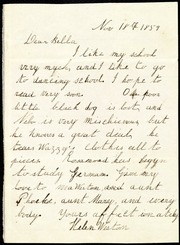 Nov 18th 1859
Dear Hilda
I like my school
very much, and I like to go
to dancing school. I hope to
read very soon. Our poor
little black dog is lost, and
Nebo is very mischievous but
he knows a great deal, he
tears Wazzy's clothes all to
pieces Rosamond has begun
to study German. Give my
love to and aunt
Phoebe, aunt Mary, and every
body. Yours affectionately
Helen Weston